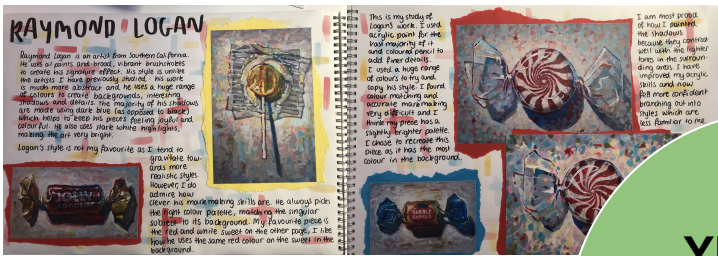 RAYMOND LOGAN
Raymond Logan is an artist from Southern California.
He uses oil paints and broad, vibrant brushstrokes
to create his signature effect. His style is unlike
the artists I have previously studied: his work
is much more abstract and he uses a huge range
of colours to create backgrounds, interesting
shadows and details. The majority of his shadows
are made using dark blue (as opposed to black)
which helps to keep his pieces feeling joyful and
colourful. He also uses stark white highlights,
making the art very bright.
Logan's style is not my favourite as I tend to
gravitate tow-
ards more
realistic styles.
However, I do
admire how
clever his markmaking skills are. He always picks
the right colour palette, matching the singular
subject to its background. My favourite piece is
the red and white sweet on the other page, I like
how he uses the same red colour on the sweet in the
background.
This is my study of
Logan's work. I used
acrylic paint for the
vast majority of it
and coloured pencil to
add finer details.
I used a huge range
of colours to try and
copy his style. I found
colour matching and
accurate markmaking
very difficult and I
think my piece has a
slightly brighter palette.
I chose to recreate this
piece as it has the most
colour in the background.
I am most proud
of how I painted
the shadows
because they contrast
well with the lighter
tones in the surroun-
ding areas. I have
improved my acrylic
skills and now
feel more confident
branching out into
styles which are
less familiar to me.
DUBBLE
BUBBLE